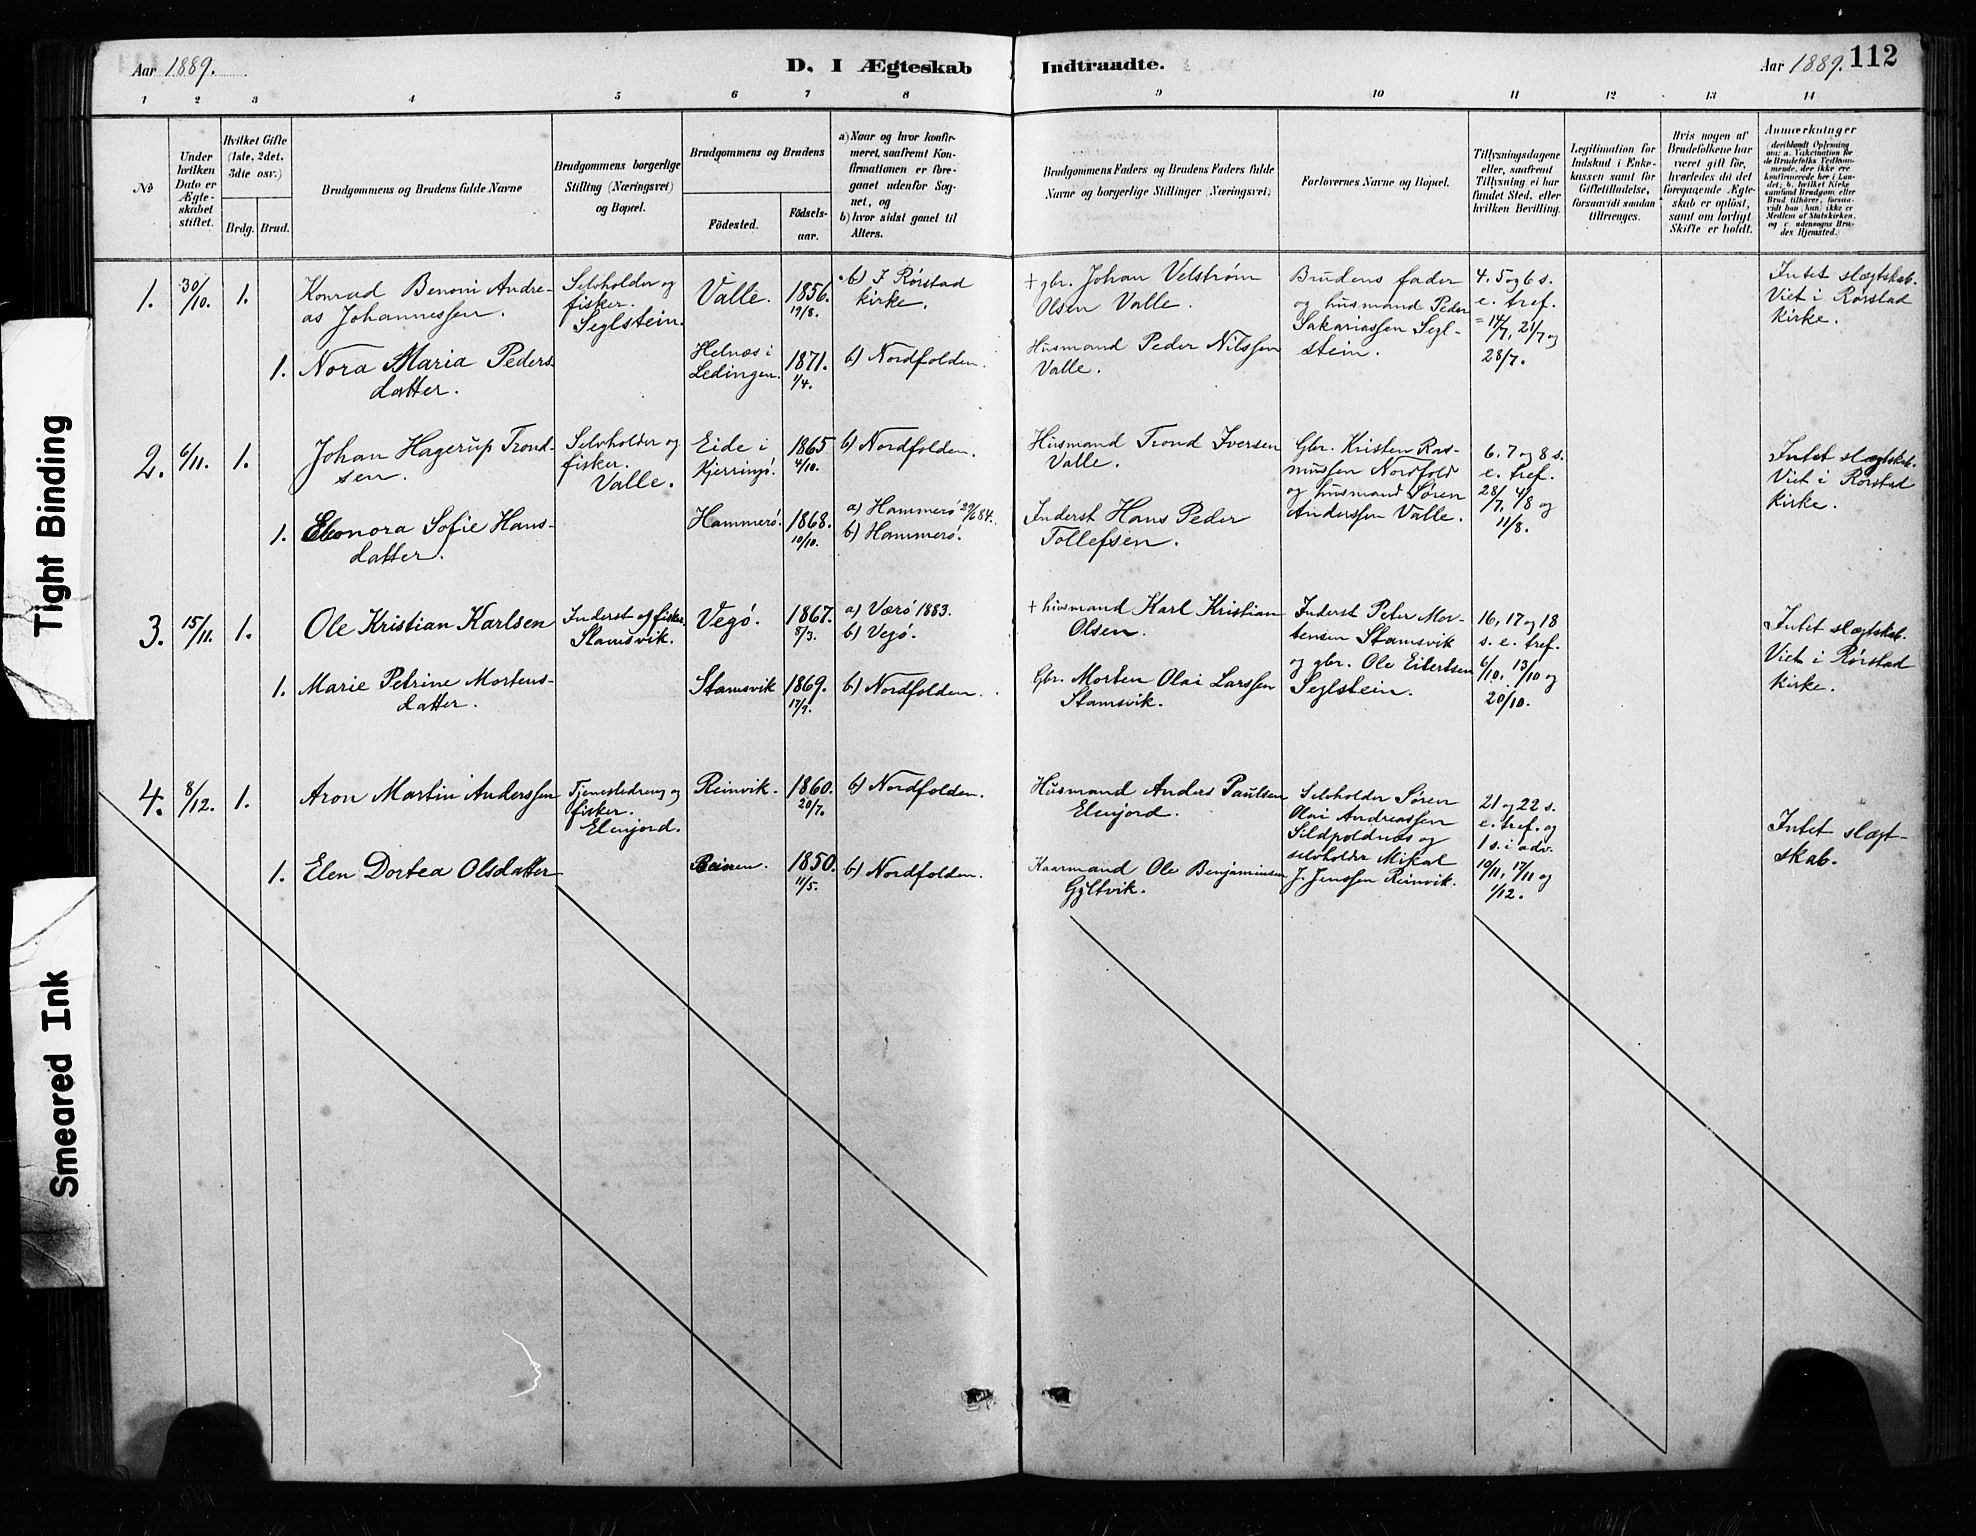 Aar 1889.
D. I Ægteskab Indtraadte.
Aar 1889. 112
1 2 3 4 5 6 7 8 9 10 11 12 13 14
No
Under hvilken Dato er Ægteskabet stiftet.
Hvilket Gifte (1ste, 2det, 3die osv.)
Brdg. Brud.
Brudgommens og Brudens fulde Navne
Brudgommens borgerlige Stilling (Næringsvei) og Bopæl.
Brudgommens og Brudens
Födested.
Födselsaar.
a) Naar og hvor konfirmeret, saafremt Konfirmationen er foregaaet udenfor Sognet, og
b) hvor sidst gaaet til Alters.
Brudgommens Faders og Brudens Faders fulde Navne og borgerlige Stillinger (Næringsvei)
Forlovernes Navne og Bopæl.
Tillysningsdagene eller, saafremt Tillysning ei har fundet Sted, efter hvilken Bevilling.
Legitimation for Indskud i Enkekassen samt for Giftetilladelse, forsaavidt saadan tiltrænges.
Hvis nogen af Brudefolkene har været gift för, hvorledes da det foregaaende Ægteskab er oplöst, samt om lovligt Skifte er holdt.
Anmærkninger
(deriblandt Oplysning om: a. Vakcination for de Brudefolks Vedkommende, der ikke ere konfirmerede her i Landet; b. hvilket Kirkesamfund Brudgom eller Brud tilhører, forsaavidt han (hun) ikke er Medlem af Statskirken, og c. udensogns Brudes Hjemsted.)
1. 30/10. 1.
Konrad Benoni Andre-
as Johannessen.
Selvholder og
fisker.
Seglstein.
Valle.
1856.
19/8.
b) I Rørstad
kirke.
+ gbr. Johan Velstrøm
Olsen Valle.
Brudens fader
og husmand Peder
Sakariassen Segl-
stein.
4. 5 og 6 s.
e. tref.
= 14/7, 21/7 og
28/7.
Intet slægtskab.
Viet i Rørstad
kirke.
1. Nora Maria Peders-
datter.
Helnæs i
Lødingen.
1871.
1/4.
b) Nordfolden.
Husmand Peder Nilssen
Valle.
2. 6/11. 1.
Johan Hagerup Trond-
sen.
Selvholder og
fisker.
Valle.
Eide i
Kjerringø.
1865
4/10.
b) Nordfolden.
Husmand Trond Iversen
Valle.
Gbr. Kristen Ras-
mussen Nordfold
og husmand Søren
Anderssen Valle.
6. 7 og 8 s.
e. tref.
28/7, 4/8 og
11/8.
Intet slægtskab.
Viet i Rørstad
kirke.
1. Elenora Sofie Hans-
datter.
Hammerø.
1868.
10/10.
a) Hammerø 29/6 84.
b) Hammerø.
Inderst Hans Peder
Tollefsen.
3. 15/11. 1.
Ole Kristian Karlsen
Inderst og fisker
Stamsvik.
Vegø.
1867.
8/3.
a) Værø 1883.
b) Vegø.
+ husmand Karl Kristian
Olsen.
Inderst Peter Mor-
tensen Stamsvik
og gbr. Ole Eilertsen
Seglstein.
16, 17 og 18
s. e. tref.
6/10, 13/10 og
20/10.
Intet slægtskab.
Viet i Rørstad
kirke.
1. Marie Petrine Mortens-
datter.
Stamsvik
1869.
17/9.
b) Nordfolden.
Gbr. Morten Olai Larssen
Stamsvik.
4. 8/12. 1.
Aron Martin Anderssen
Tjenestedreng og
fisker.
Elenjord.
Reinvik.
1860.
20/7.
b) Nordfolden.
Husmand Anders Paulsen
Elenjord.
Selvholder Søren
Olai Andreassen
Sildpoldnæs og
selvholder Mikal
J. Jenssen Reinvik.
21 og 22 s.
e. tref. og
1 s. i adv.
10/11, 17/11 og
1/12.
Intet slægt-
skab.
1. Elen Dortea Olsdatter
Beiaren.
1850.
11/5.
b) Nordfolden.
Kaarmand Ole Benjaminsen
Gyltvik.
Tight Binding
Smeared Ink